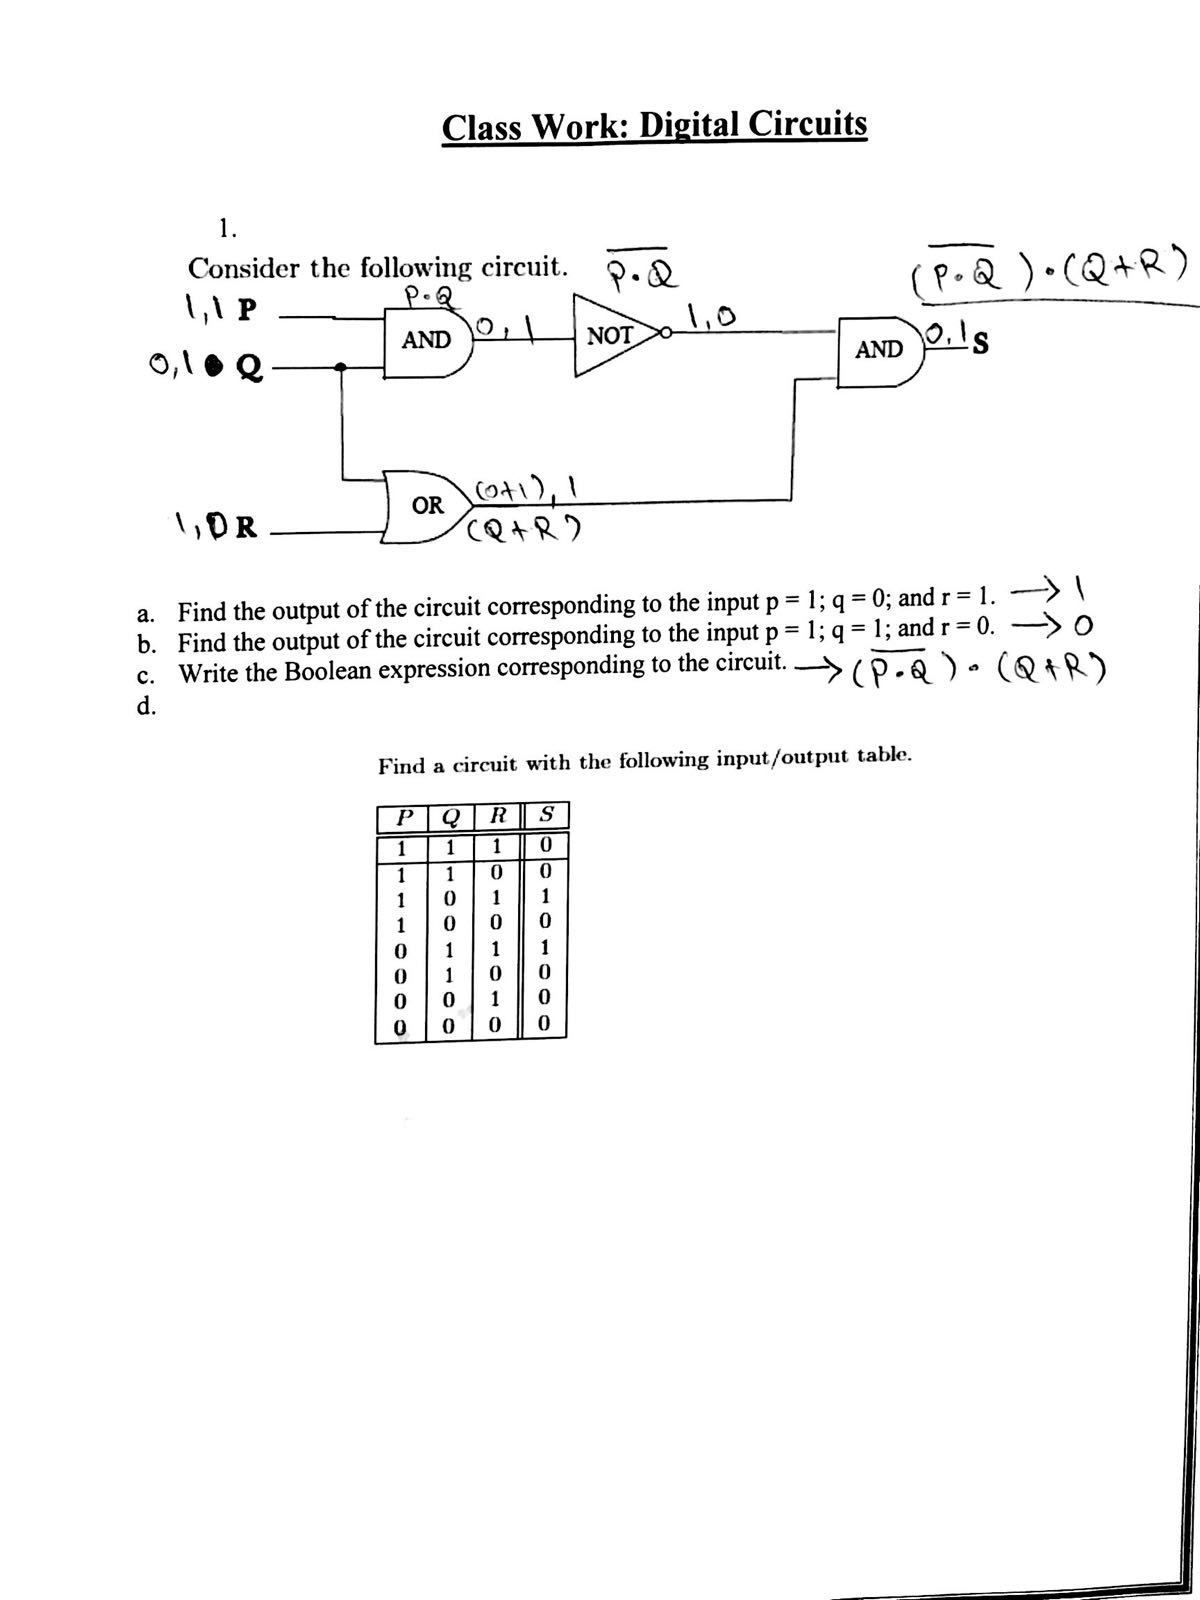 Class Work: Digital Circuits
1.
Consider the following circuit.
P·Q
P·Q
(P·Q)·(Q+R)
1,1 P
AND
0,1
NOT
1,0
AND
0,1 S
0,1 Q
OR
(0+1), 1
(Q+R)
1,0 R
a. Find the output of the circuit corresponding to the input p = 1; q = 0; and r = 1. → 1
b. Find the output of the circuit corresponding to the input p = 1; q = 1; and r = 0. → 0
c. Write the Boolean expression corresponding to the circuit. → (P·Q)·(Q+R)
d.
Find a circuit with the following input/output table.
P Q R S
1 1 1 0
1 1 0 0
1 0 1 1
1 0 0 0
0 1 1 1
0 1 0 0
0 0 1 0
0 0 0 0